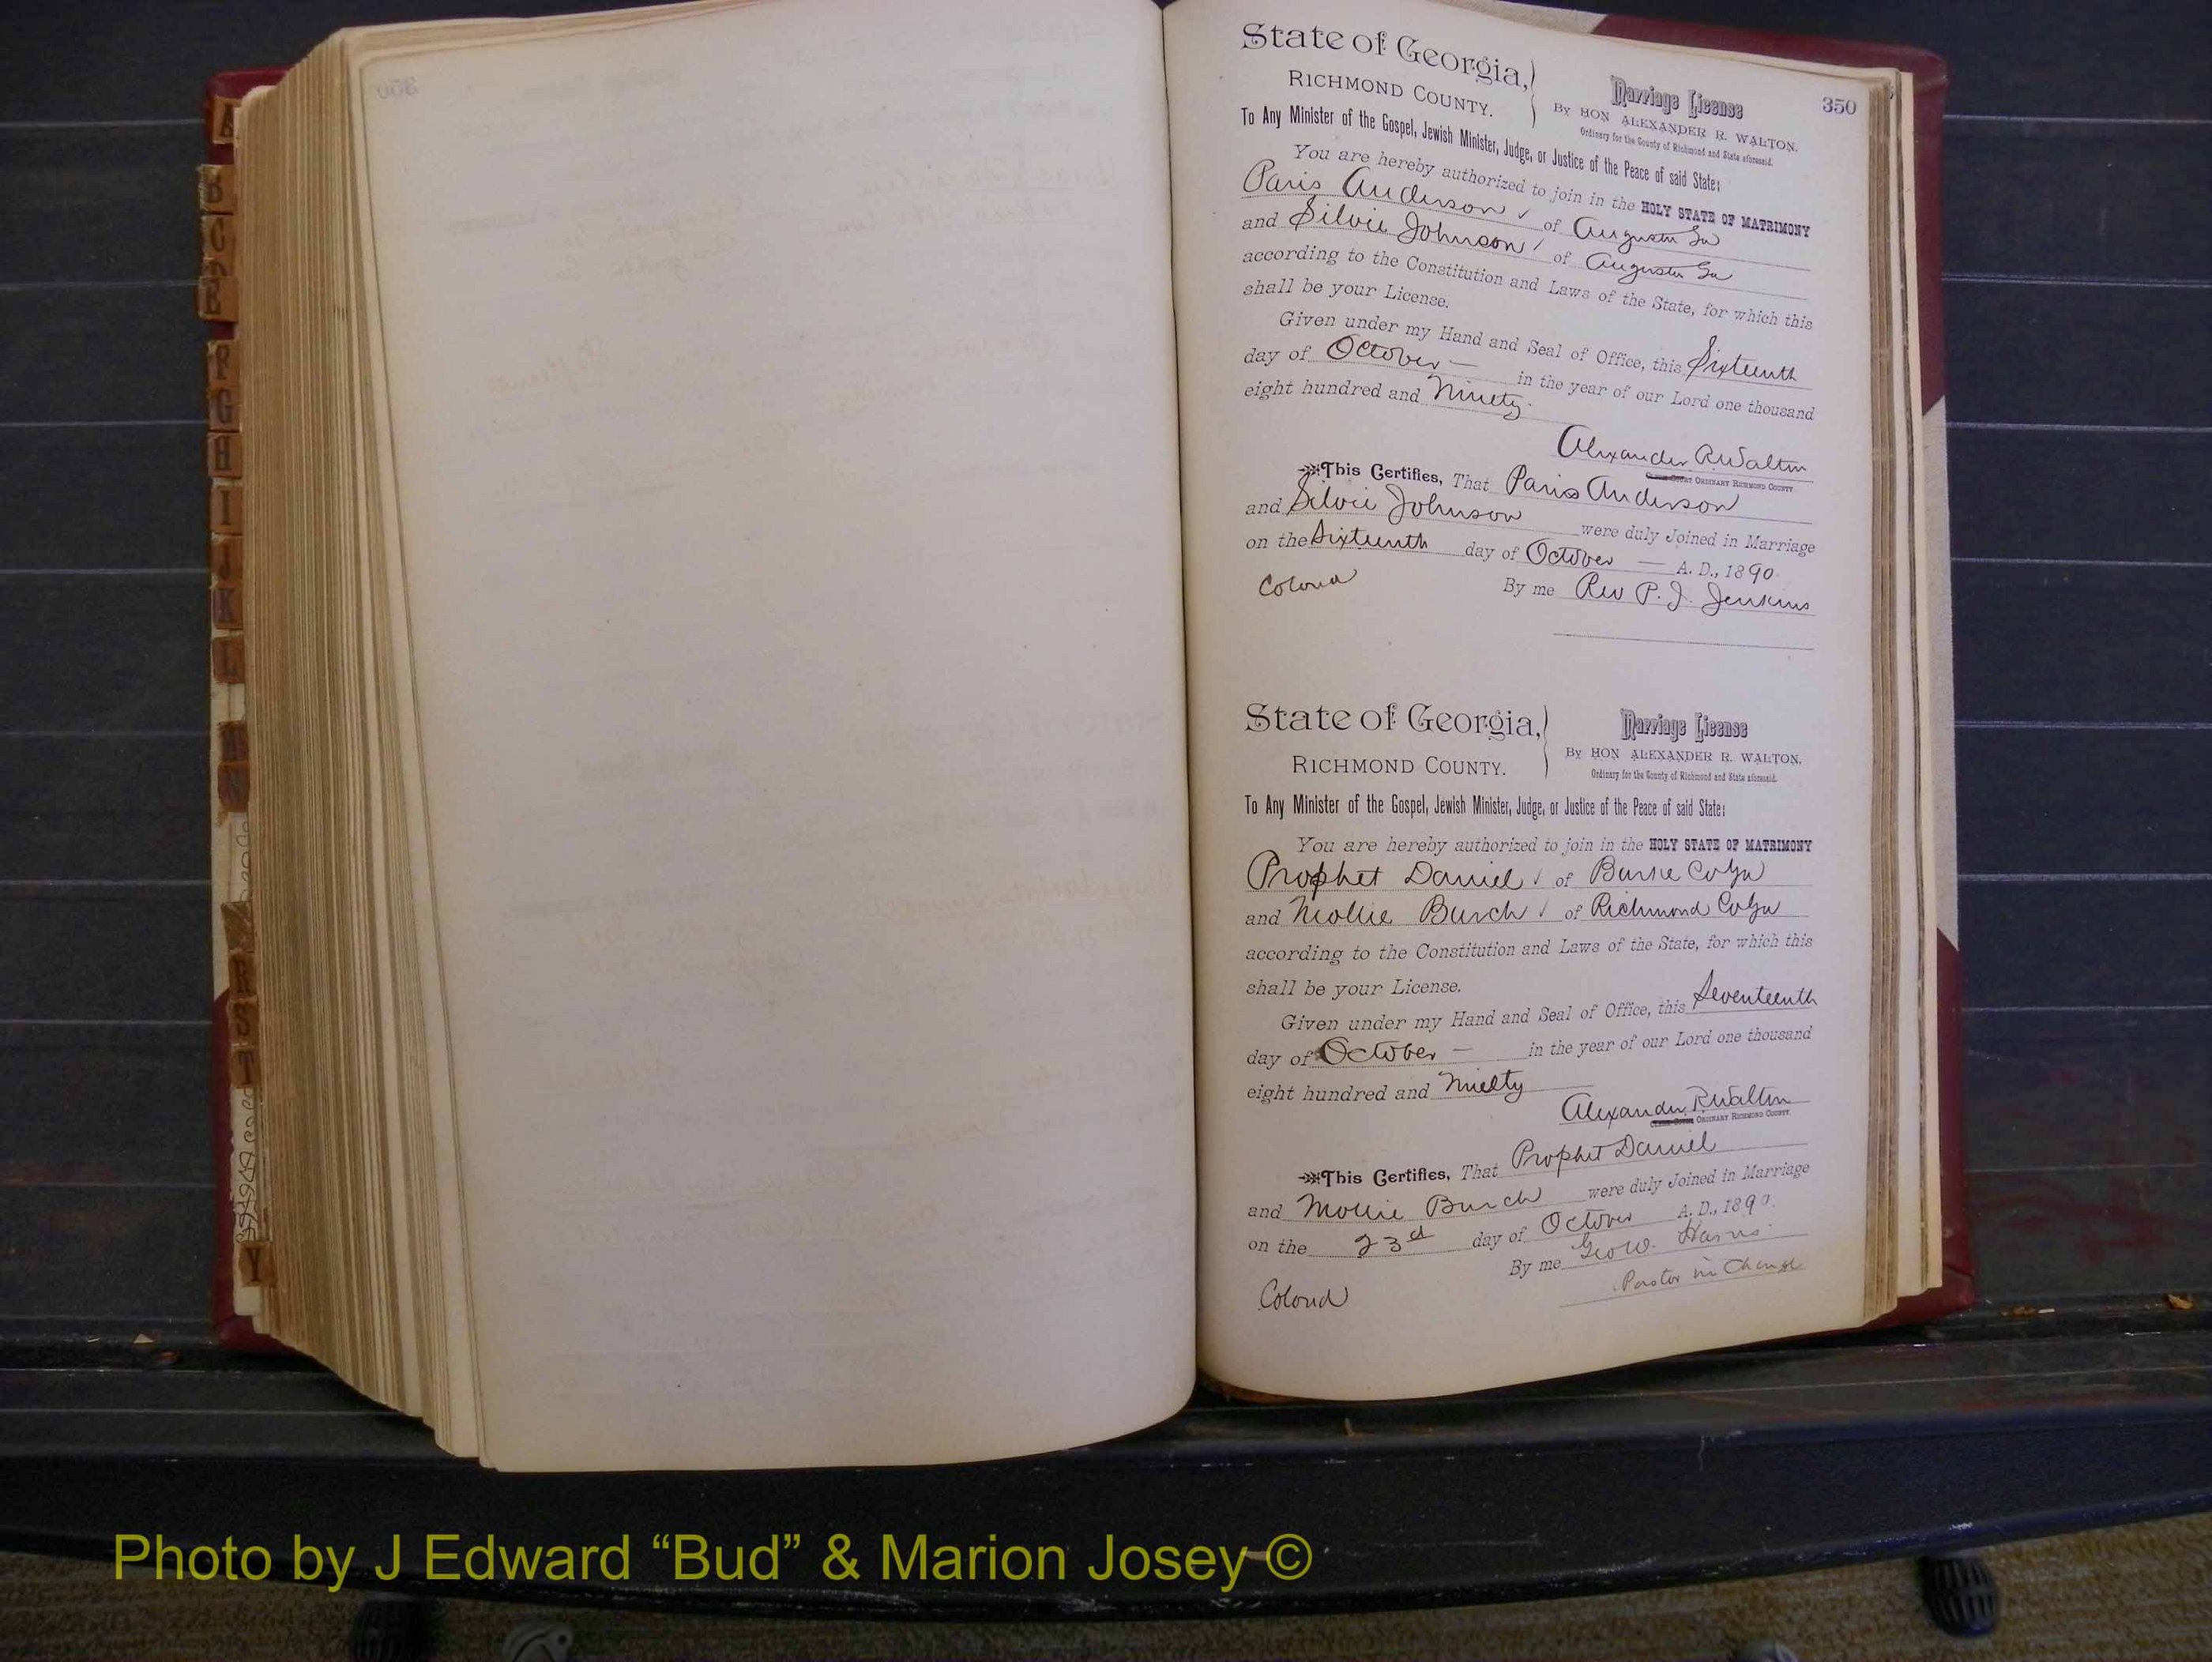 350
State of Georgia,
RICHMOND COUNTY.
Marriage License
BY HON ALEXANDER R. WALTON.
Ordinary for the County of Richmond and State aforesaid.
To Any Minister of the Gospel, Jewish Minister, Judge, or Justice of the Peace of said State:
You are hereby authorized to join in the HOLY STATE OF MATRIMONY
Paris Anderson of Augusta Ga
and Silvie Johnson of Augusta Ga
according to the Constitution and Laws of the State, for which this
shall be your License.
Given under my Hand and Seal of Office, this Sixteenth
day of October — in the year of our Lord one thousand
eight hundred and Ninety
Alexander R. Walton
ORDINARY RICHMOND COUNTY
This Certifies, That Paris Anderson
and Silvie Johnson were duly Joined in Marriage
on the Sixteenth day of October — A. D., 1890
Colored By me Rev P. J. Jenkins
State of Georgia,
RICHMOND COUNTY.
Marriage License
BY HON ALEXANDER R. WALTON.
Ordinary for the County of Richmond and State aforesaid.
To Any Minister of the Gospel, Jewish Minister, Judge, or Justice of the Peace of said State:
You are hereby authorized to join in the HOLY STATE OF MATRIMONY
Prophet Daniel of Burke Co Ga
and Mollie Burch of Richmond Co Ga
according to the Constitution and Laws of the State, for which this
shall be your License.
Given under my Hand and Seal of Office, this Seventeenth
day of October — in the year of our Lord one thousand
eight hundred and Ninety
Alexander R. Walton
ORDINARY RICHMOND COUNTY.
This Certifies, That Prophet Daniel
and Mollie Burch were duly Joined in Marriage
on the 23rd day of October A. D., 1890.
By me Geo W. Harris
Pastor in Charge
Colored
A
B
C
D
E
F
G
H
I
J
K
L
M
N
R
S
T
Y
Photo by J Edward “Bud” & Marion Josey ©